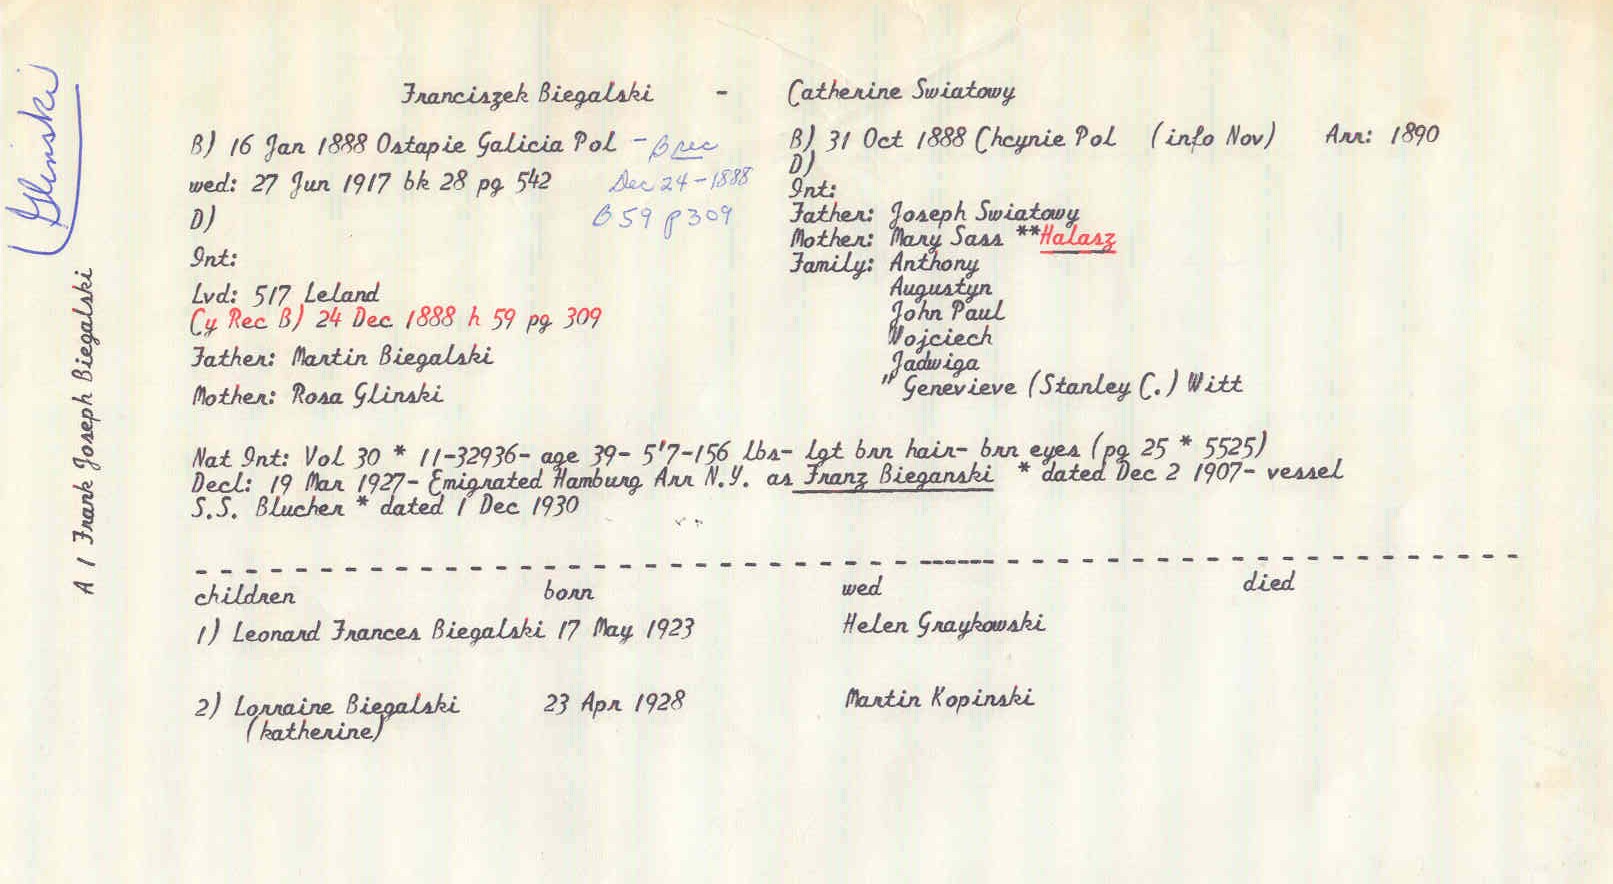 Glinski
A 1 Frank Joseph Biegalski
Franciszek Biegalski - Catherine Swiatowy
B) 16 Jan 1888 Ostapie Galicia Pol - B rec
Dec 24-1888
B 59 p 309
wed: 27 Jun 1917 bk 28 pg 542
D)
Int:
Lvd: 517 Leland
Cy Rec B) 24 Dec 1888 h 59 pg 309
Father: Martin Biegalski
Mother: Rosa Glinski
B) 31 Oct 1888 Chcynie Pol (info Nov) Arr: 1890
D)
Int:
Father: Joseph Swiatowy
Mother: Mary Sass **Halasz
Family: Anthony
Augustyn
John Paul
Wojciech
Jadwiga
" Genevieve (Stanley C.) Witt
Nat Int: Vol 30 * 11-32936- age 39- 5'7-156 lbs- lgt brn hair- brn eyes (pg 25 * 5525)
Decl: 19 Mar 1927- Emigrated Hamburg Arr N.Y. as Franz Bieganski * dated Dec 2 1907- vessel
S.S. Blucher * dated 1 Dec 1930
children born wed died
1) Leonard Frances Biegalski 17 May 1923 Helen Graykowski
2) Lorraine Biegalski 23 Apr 1928 Martin Kopinski
(katherine)